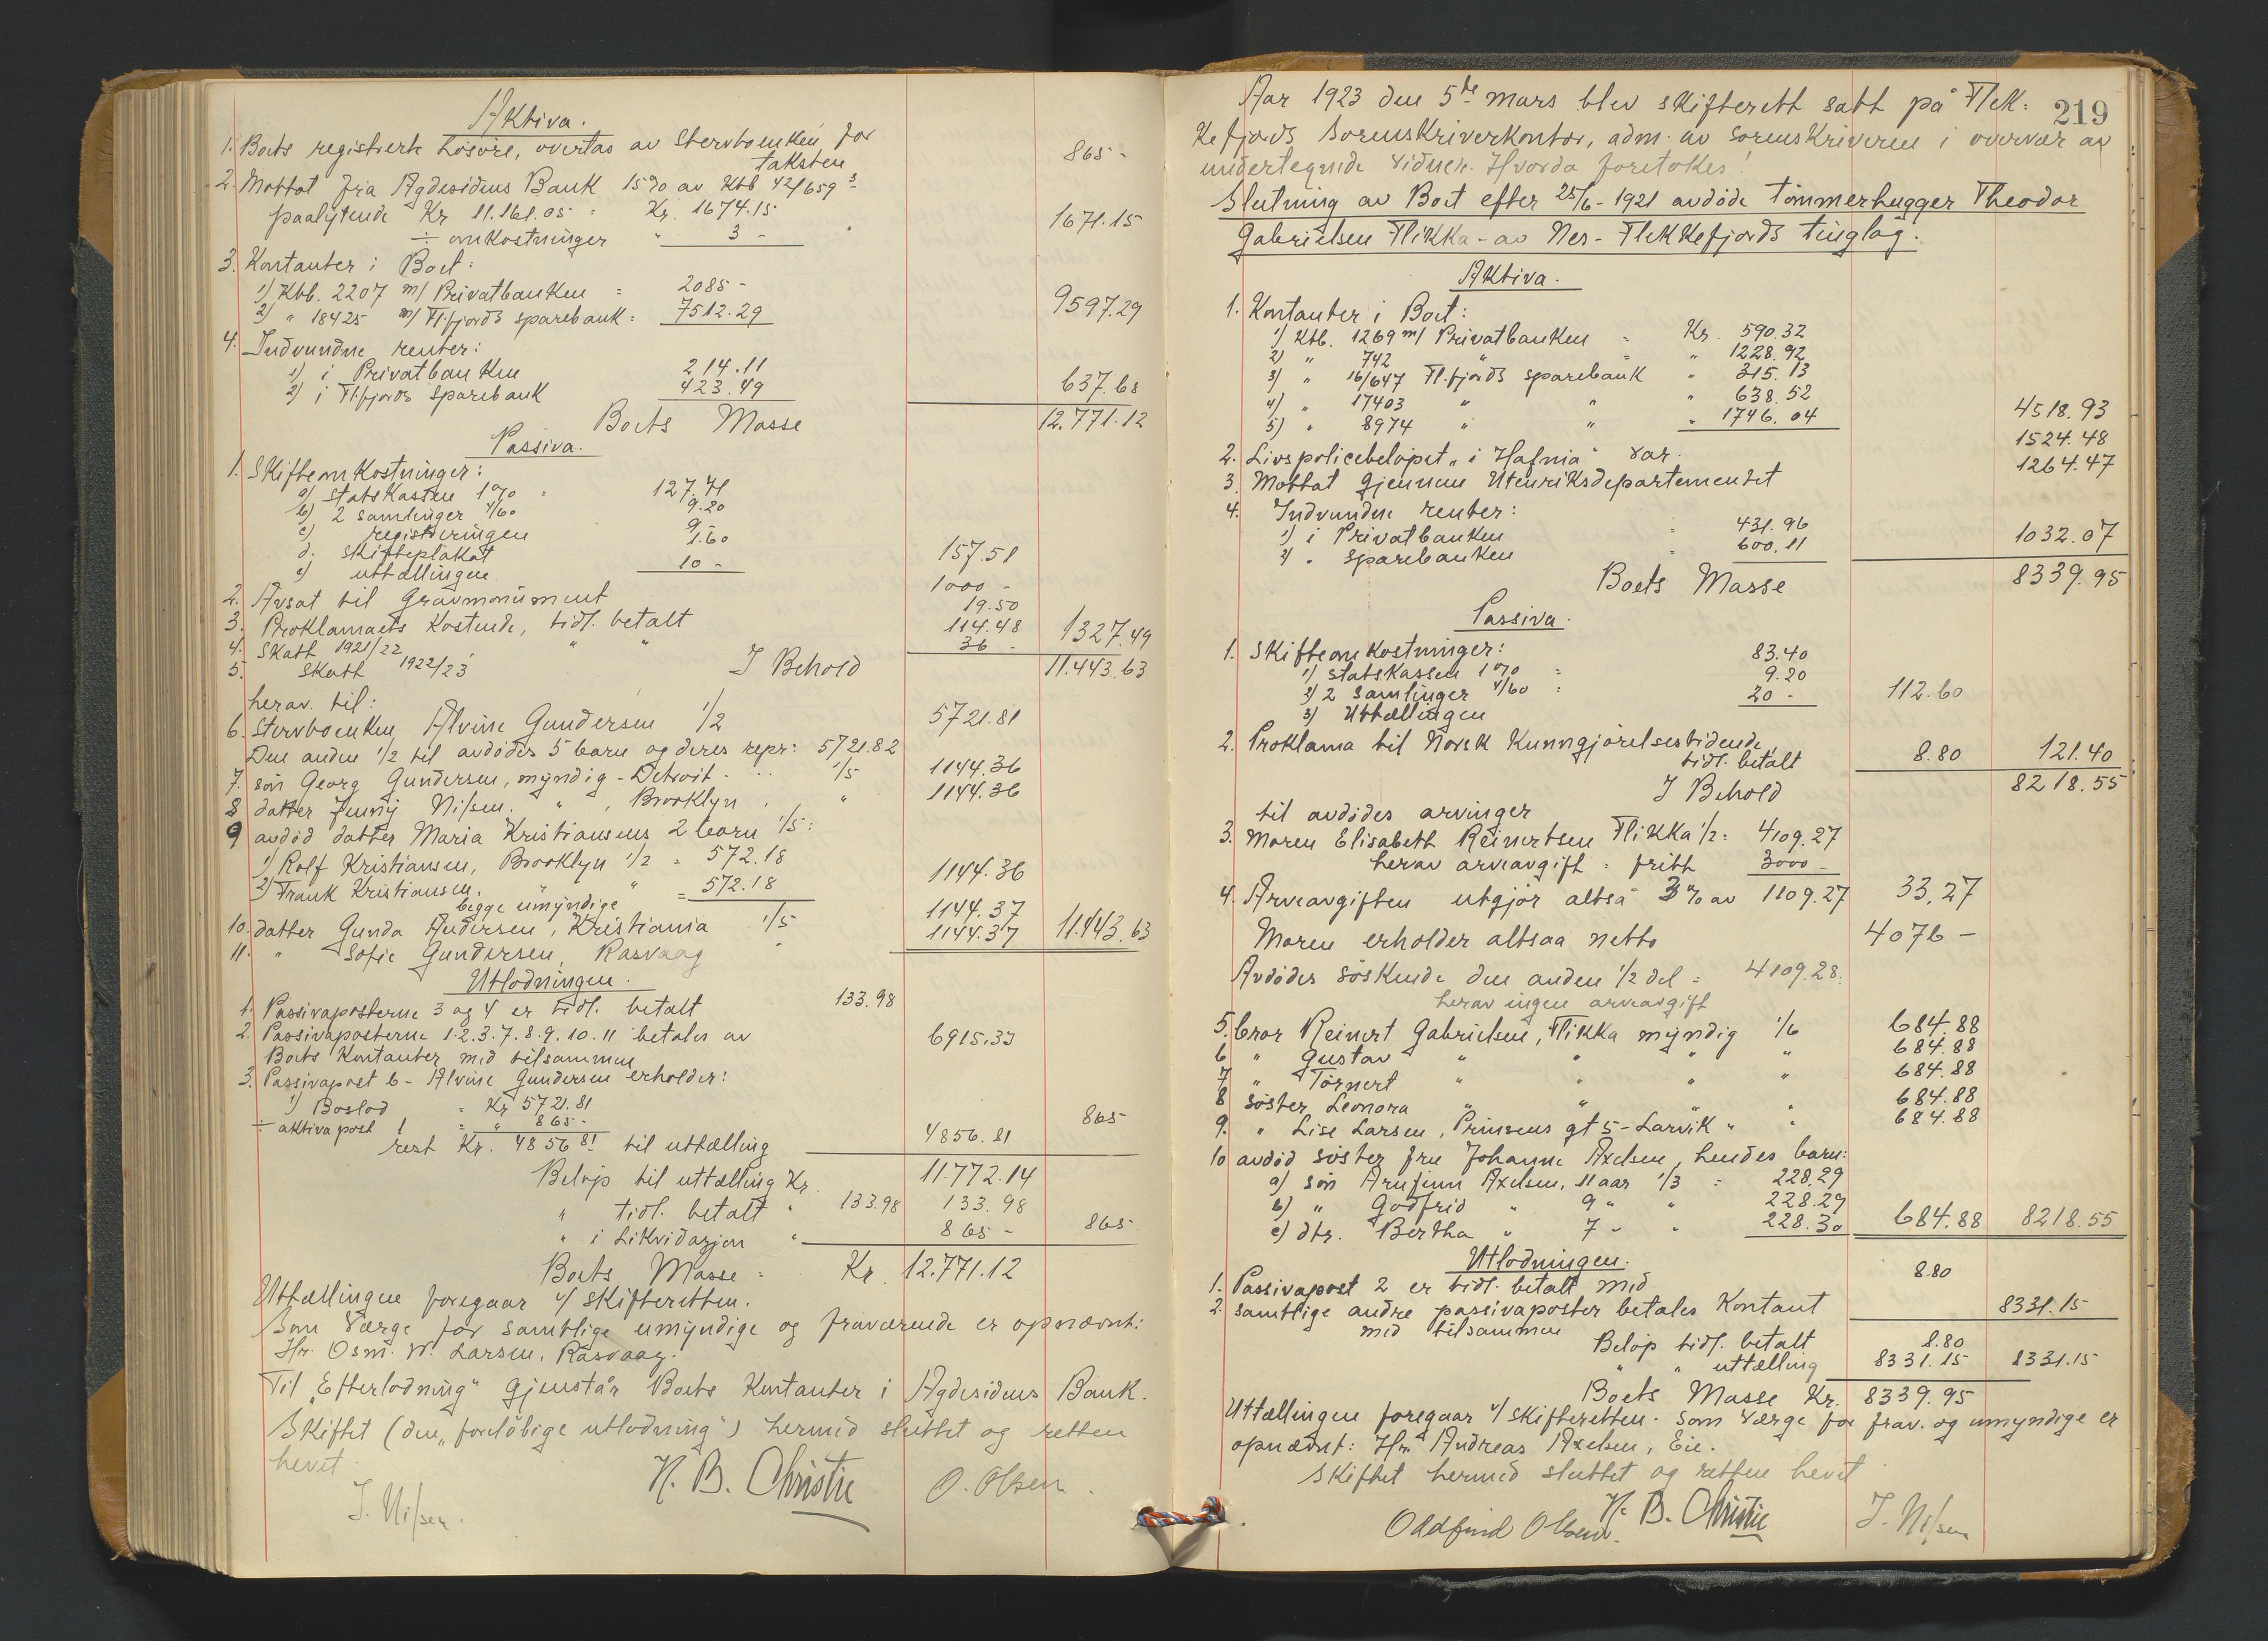 Aktiva.
1. Boets registrerte Løsøre, overtas av Stervboenken for
taksten 865 -
2. Mottat fra Agdesidens Bank 15% av Ktb 42/659
paalydende Kr 11.161.05 = Kr. 1674.15
÷ omkostninger " 3 - 1671.15
3. Kontanter i Boet:
1) Ktb. 2207 m/ Privatbanken = 2085 -
2) " 18425 m/ Fl.fjords sparebank = 7512.29 9597.29
4. Indvundne renter:
1) i Privatbanken 214.11
2) i Fl.fjords sparebank 423.49 637.68
Boets Masse 12.771.12
Passiva.
1. Skifteomkostninger:
a) statskassen 1% = 127.71
b) 2 samlinger 4/60 9.20
c) registreringen 9.-
d. skifteplakat 1.60
e) uttællingen 10 - 157.51
2. Avsat til gravmonument 1000 -
3. Proklamaets Kostende, tidl. betalt 19.50
4. Skatt 1921/22 " " 114.48 1327.49
5. Skatt 1922/23 36 -
I Behold 11.443.63
herav til:
6. Stervboenken Alvine Gundersen 1/2 5721.81
Den anden 1/2 til avdødes 5 barn og deres repr: 5721.82
7. søn Georg Gundersen, myndig - Detroit - 1/5 1144.36
8 datter Jenny Nilsen. " , Brooklyn " 1144.36
9 avdød datter Maria Kristiansens 2 barn 1/5:
1) Rolf Kristiansen, Brooklyn 1/2 = 572.18
2) Frank Kristiansen. " " = 572.18 1144.36
begge umyndige
10. datter Gunda Andersen, Kristiania 1/5 1144.37
11. " Sofie Gundersen, Rasvaag " 1144.37 11.443.63
Utlodningen.
1. Passivaposterne 3 og 4 er tidl. betalt 133.98
2. Passivaposterne 1.2.3.7.8.9.10.11 betales av
Boets Kontanter med tilsammen 6915.33
3. Passivapost 6 - Alvine Gundersen erholder:
1) Boslod = Kr 5721.81
÷ aktiva post 1 = " 865 - 865 -
rest Kr. 4856.81 til uttælling 4856.81
Beløp til uttælling Kr. 11.772.14
" tidl. betalt " 133.98 133.98
" i Likvidasjon " 865 - 865 -
Boets Masse = Kr. 12.771.12
Uttællingen foregaar v/ skifteretten.
Som Værge for samtlige umyndige og fraværende er opnævnt:
Hr. Osm. W. Larsen, Rasvaag.
Til "Efterlodning" gjenstår Boets Kontanter i Agdesidens Bank.
Skiftet (den "foreløbige utlodning") hermed sluttet og retten
hevet.
N. B. Christie O. Olsen.
J. Nilsen.
219
Aar 1923 den 5te mars blev skifterett satt på Flek-
kefjords Sorenskriverkontor, adm. av sorenskriveren i overvær av
undertegnede vidner. Hvorda foretokes!
Slutning av Boet efter 25/6 - 1921 avdøde tømmerhugger Theodor
Gabrielsen Flikka - av Nes - Flekkefjords tinglag.
Aktiva.
1. Kontanter i Boet:
1) Ktb. 1269 m/ Privatbanken = Kr. 590.32
2) " 742 " = " 1228.92
3) " 16/647 Fl.fjords sparebank " 315.13
4) " 17403 " " " 638.52
5) " 8974 " " " 1746.04 4518.93
2. Livspolicebeløpet "i Hafnia" var 1524.48
3. Mottat gjennem Utenriksdepartementet 1264.47
4. Indvundne renter:
1) i Privatbanken 431.96
2) " sparebanken 600.11 1032.07
Boets Masse 8339.95
Passiva.
1. Skifteomkostninger:
1) statskassen 1% = 83.40
2) 2 samlinger 4/60 = 9.20
3) Uttællingen 20 - 112.60
2. Proklama til Norsk Kunngjørelsestidende,
tidl. betalt 8.80 121.40
I Behold 8218.55
til avdødes arvinger
3. Moren Elisabeth Reinertsen Flikka 1/2 = 4109.27
herav arveavgift = fritt 3000 -
4. Arveavgiften utgjør altså 3% av 1109.27 33.27
Moren erholder altsaa netto 4076 -
Avdødes søskende den anden 1/2 del = 4109.28.
herav ingen arveavgift
5. bror Reinert Gabrielsen, Flikka myndig 1/6 684.88
6 " Gustav " " " " 684.88
7 " Tørnert " " " " 684.88
8 søster Leonora " " " " 684.88
9. " Lise Larsen, Prinsens gt 5 - Larvik " " 684.88
10 avdød søster fru Johanne Axelsen, hendes barn:
a) søn Arnfinn Axelsen, 11 aar 1/3 = 228.29
b) " Godfrid " 9 " " 228.29
c) dtr. Bertha " 7 " " 228.30 684.88 8218.55
Utlodningen.
1. Passivapost 2 er tidl. betalt med 8.80
2. samtlige andre passivaposter betales Kontant
med tilsammen 8331.15
Beløp tidl. betalt 8.80
" " uttælling 8331.15 8331.15
Boets Masse Kr. 8339.95
Uttællingen foregaar v/ skifteretten. Som Værge for frav. og umyndige er
opnævnt: Hr. Andreas Axelsen, Eie.
Skiftet hermed sluttet og retten hevet
Oddfind Olsen. N. B. Christie J. Nilsen